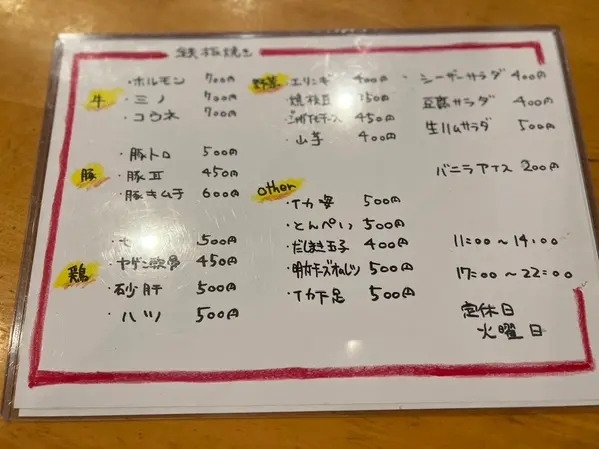 鉄板焼き
牛
・ホルモン 700円
・ミノ 700円
・コウネ 700円
豚
・豚トロ 500円
・豚耳 450円
・豚キムチ 600円
鶏
500円
・ヤゲン軟骨 450円
・砂肝 500円
・ハツ 500円
野菜
・エリンギ 400円
・焼枝豆 350円
・じゃがチーズ 450円
・山芋 400円
other
・イカ姿 500円
・とんぺい 500円
・だしまき玉子 400円
500円
・イカ下足 500円
シーザーサラダ 400円
豆腐サラダ 400円
生ハムサラダ 500円
バニラアイス 200円
11:00〜14:00
17:00〜22:00
定休日
火曜日